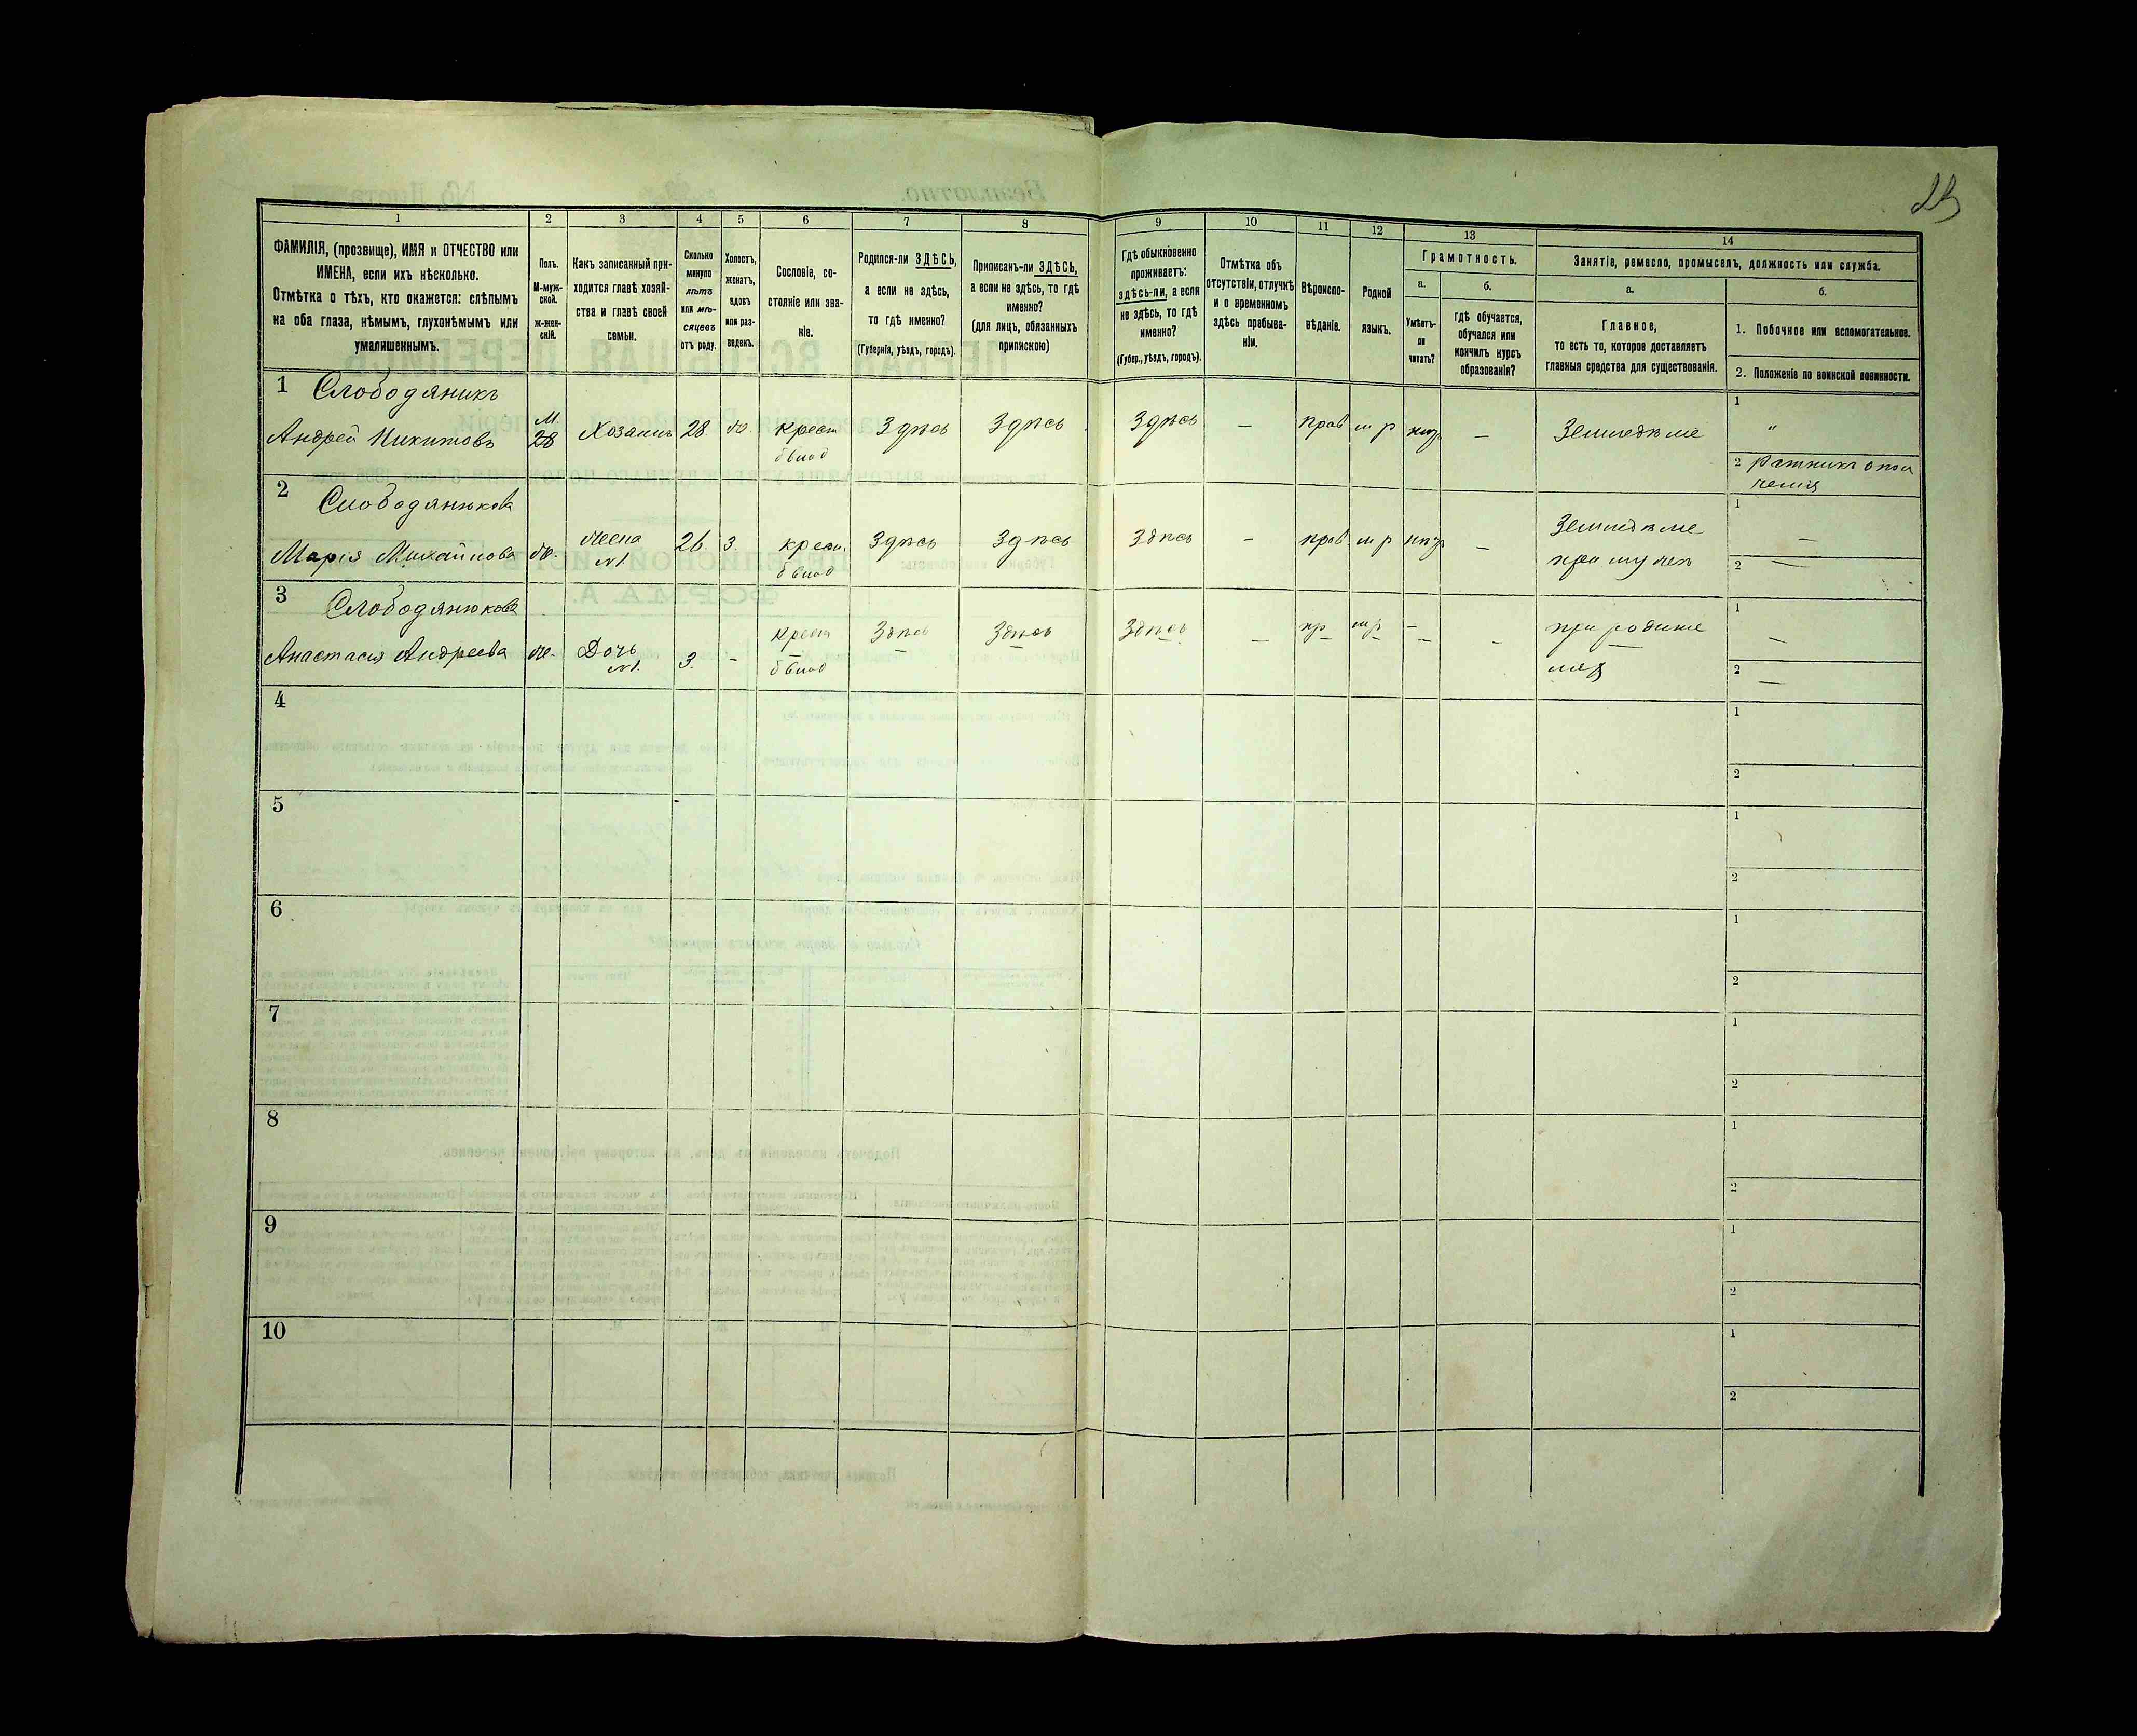 23
1
2
3
4
5
6
7
8
9
10
11
12
13
14
ФАМИЛІЯ, (прозвище), ИМЯ и ОТЧЕСТВО или
ИМЕНА, если ихъ нѣсколько.
Отмѣтка о тѣхъ, кто окажется: слѣпымъ
на оба глаза, нѣмымъ, глухонѣмымъ или
умалишеннымъ.
Полъ.
М-муж-
ской.
ж-жен-
скій.
Какъ записанный при-
ходится главѣ хозяй-
ства и главѣ своей
семьи.
Сколько
минуло
лѣтъ
или мѣ-
сяцевъ
отъ роду.
Холостъ,
женатъ,
вдовъ
или раз-
веденъ.
Сословіе, со-
стояніе или зва-
ніе.
Родился-ли ЗДѢСЬ,
а если не здѣсь,
то гдѣ именно?
(Губернія, уѣздъ, городъ).
Приписанъ-ли ЗДѢСЬ,
а если не здѣсь, то гдѣ
именно?
(для лицъ, обязанныхъ
припискою)
Гдѣ обыкновенно
проживаетъ:
здѣсь-ли, а если
не здѣсь, то гдѣ
именно?
(Губер., уѣздъ, городъ).
Отмѣтка объ
отсутствіи, отлучкѣ
и о временномъ
здѣсь пребыва-
ніи.
Вѣроиспо-
вѣданіе.
Родной
языкъ.
Грамотность.
а.
Умѣетъ-
ли
читать?
б.
Гдѣ обучается,
обучался или
кончилъ курсъ
образованія?
Занятіе, ремесло, промыселъ, должность или служба.
а.
Главное,
то есть то, которое доставляетъ
главныя средства для существованія.
б.
1. Побочное или вспомогательное.
2. Положеніе по воинской повинности.
1 Слободяникъ
Андрей Никитовъ
М.
28
Хозаинъ
28
ж.
крест
б влад
Здѣсь
Здѣсь
Здѣсь
—
прав
м р
—
Земледѣліе
1
"
2 Ратникъ опол
ченія
2
Слободянюкова
Марія Михайлова
ж.
Жена
№1.
26
3
крест.
б влад
Здѣсь
Здѣсь
Здѣсь
-
прав
м р
—
Земледѣліе
при мужѣ
1
—
2 —
3
Слободянюкова
Анастасія Андреева
ж.
Дочь
№1.
3.
-
крест
б влад
Здѣсь
Здѣсь
Здѣсь
—
пр
м р
—
-
при родите
ляхъ
1
—
2
—
4
1
2
5
1
2
6
1
2
7
1
2
8
1
2
9
1
2
10
1
2